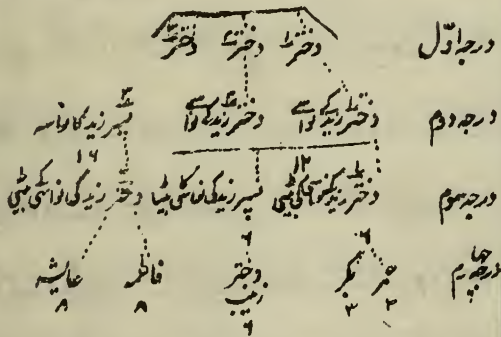 درجہ اوّل دختر دختر دختر
درجہ دوم دختر زید کے نواسے دختر زید کے نواسے پسر زید کا نواسہ
۱۲ ۱۶
درجہ سوم دختر زید کی نواسی کی بیٹی پسر زید کی نواسی کا بیٹا دختر زید کی نواسی کی بیٹی
۶ ۶
درجہ چہارم عمر بکر دختر زینب فاطمہ عایشہ
۳ ۳ ۶ ۸ ۸